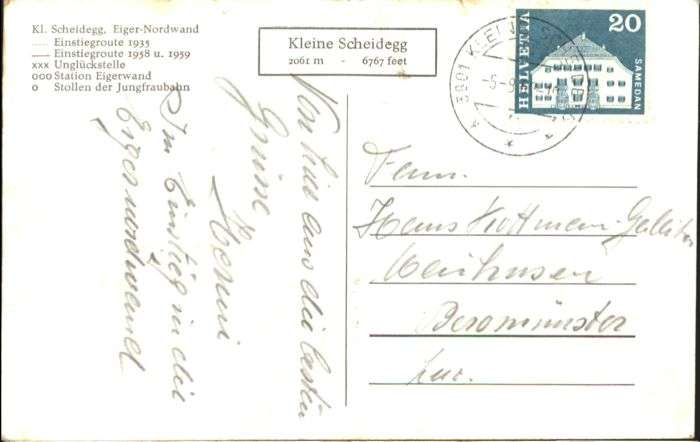 Kl. Scheidegg, Eiger-Nordwand
..... Einstiegroute 1935
—— Einstiegroute 1958 u. 1959
xxx Unglückstelle
ooo Station Eigerwand
o Stollen der Jungfraubahn
Kleine Scheidegg
2061 m - 6767 feet
HELVETIA
20
SAMEDAN
3801 KLEINE SCHEIDEGG
-5.-9
Von hier aus die besten
Grüsse
Im Einstieg in die
Eigernordwand
Fam.
Hans
Beromünster
Luz.